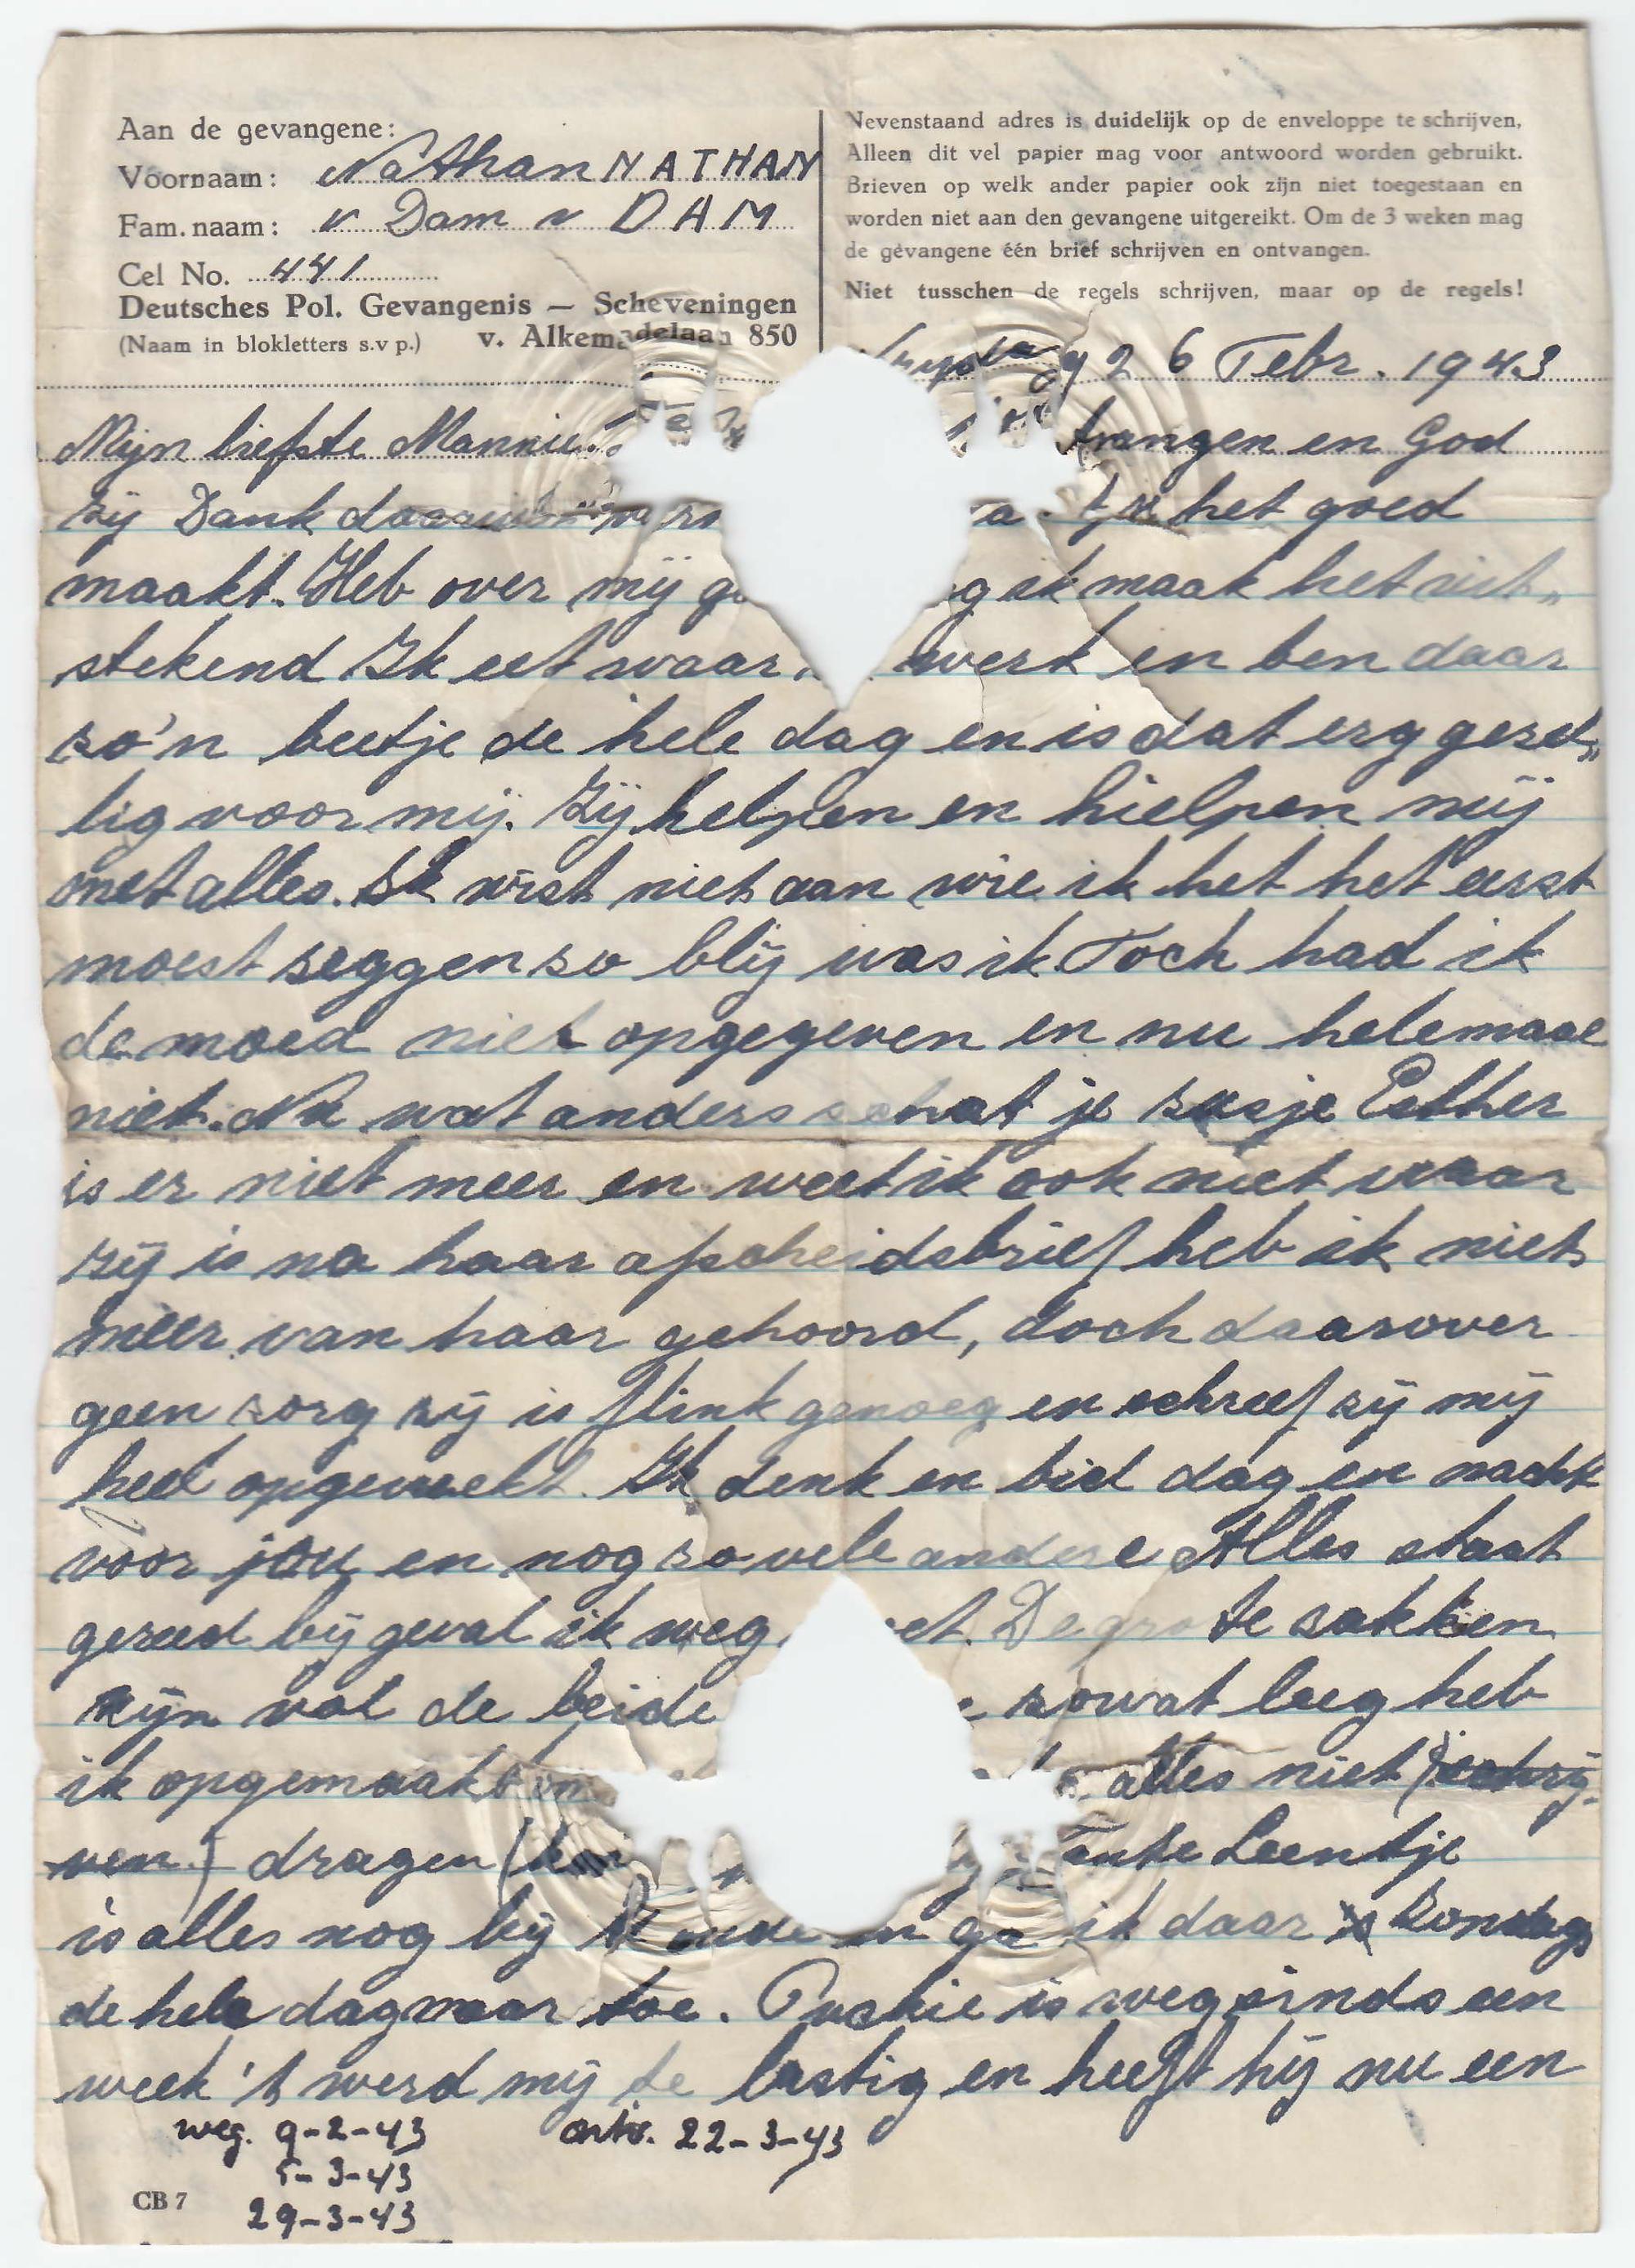 Aan de gevangene:
Voornaam: Nathan NATHAN
Fam. naam: v Dam v DAM
Cel No. 441
Deutsches Pol. Gevangenis — Scheveningen
(Naam in blokletters s.v p.) v. Alkemadelaan 850
Nevenstaand adres is duidelijk op de enveloppe te schrijven,
Alleen dit vel papier mag voor antwoord worden gebruikt.
Brieven op welk ander papier ook zijn niet toegestaan en
worden niet aan den gevangene uitgereikt. Om de 3 weken mag
de gevangene één brief schrijven en ontvangen.
Niet tusschen de regels schrijven, maar op de regels!
26 Febr. 1943
Mijn liefste Mannie. en God
zij Dank het goed
maakt. Heb over mij ik maak het uit„
stekend Ik eet waar werk en ben daar
zo'n beetje de hele dag en is dat erg gezel„
lig voor mij. Zij helpen en hielpen mij
met alles. Ik wist niet aan wie ik het het eerst
moest zeggen zo blij was ik Toch had ik
de moed niet opgegeven en nu helemaal
niet. Nu wat anders schat je zusje Esther
is er niet meer en weet ik ook niet waar
zij is na haar afscheidsbrief heb ik niets
meer van haar gehoord, doch daarover
geen zorg zij is flink genoeg en schreef zij mij
heel opgewekt. Ik denk en bid dag en nacht
voor jou en nog zo vele andere Alles staat
gereed bij geval ik weg De grote zakken
zijn vol de beide zowat leeg heb
ik opgemaakt alles niet (schrij-
ven) dragen Tante Leentje
is alles nog bij ik daar Zondags
de hele dag naar toe. is weg sinds een
week 't werd mij te lastig en heeft hij nu een
weg. 9-2-43 ontv. 22-3-43
5-3-43
CB 7
29-3-43